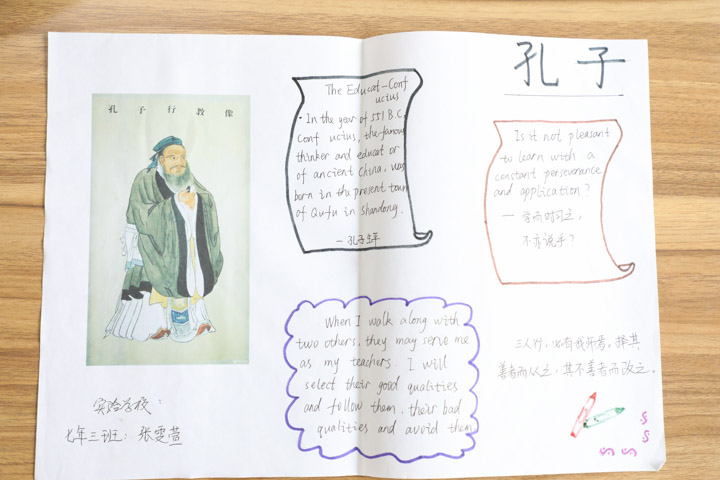 孔子
孔子行教像
The Educat-Conf
ucius
· In the year of 551 B.C.
Conf ucius, the famous
thinker and educat or
of ancient China, was
born in the present town
of Qufu in Shandong.
— 孔子生平
Is it not pleasant
to learn with a
constant perseverance
and application?
— 学而时习之,
不亦说乎?
When I walk along with
two others, they may serve me
as my teachers. I will
select their good qualities
and follow them, their bad
qualities and avoid them
三人行,必有我师焉。择其
善者而从之,其不善者而改之。
实验学校:
七年三班: 张雯萱